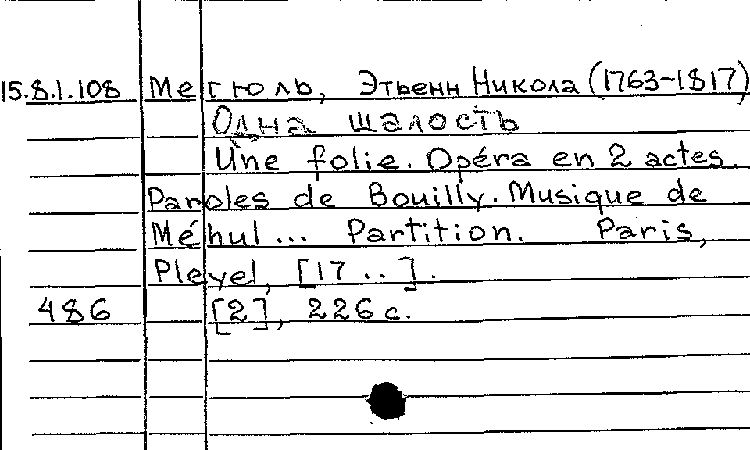 15.8.1.108 Мегюль, Этьенн Никола (1763-1817)
Одна шалость
Une folie. Opéra en 2 actes.
Paroles de Bouilly. Musique de
Méhul... Partition. Paris,
Pleyel, [17 . . ].
486 [2], 226 с.